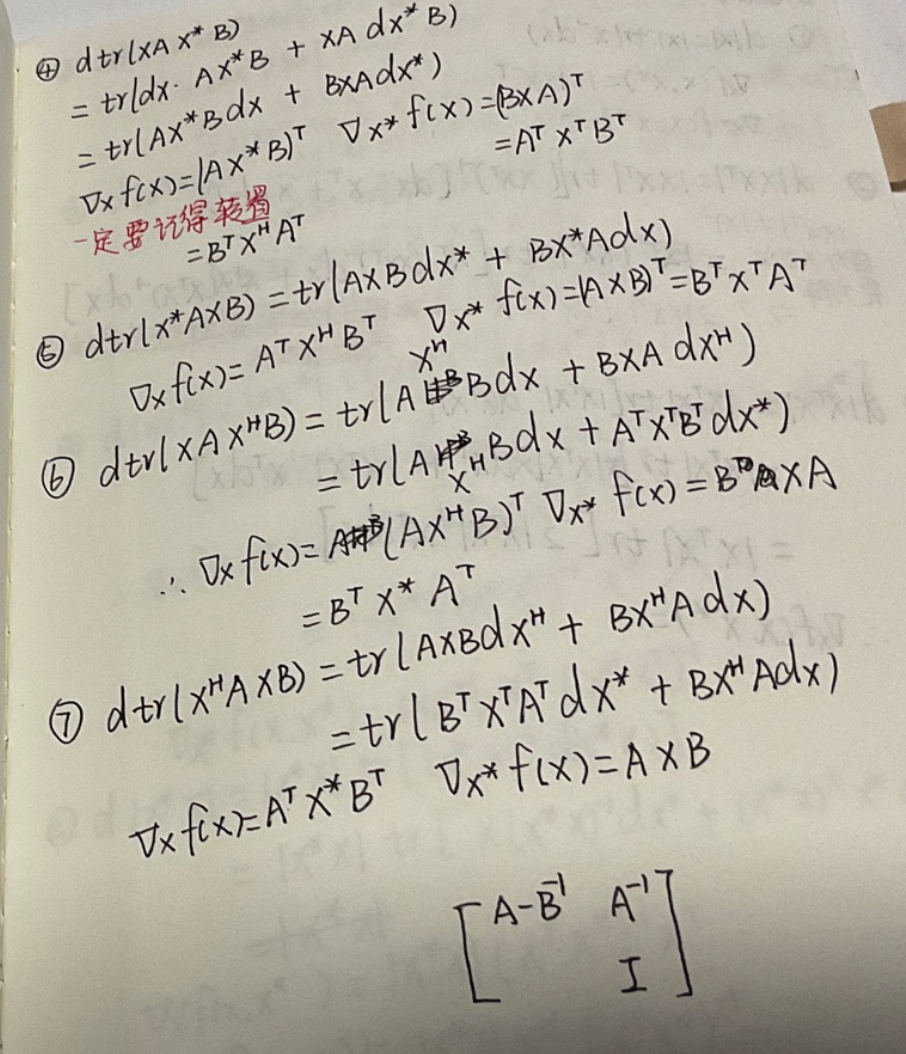 ④ dtr(XAX*B)
= tr(dx· AX*B + XA dx*B)
= tr(AX*Bdx + BXAdx*)
∇x f(x)=(AX*B)ᵀ ∇x* f(x)=(BXA)ᵀ
= Aᵀ Xᵀ Bᵀ
一定要记得转置
= Bᵀ Xᴴ Aᵀ
⑤ dtr(X*AXB) = tr(AXBdx* + BX*Adx)
∇x f(x)= Aᵀ Xᴴ Bᵀ ∇x* f(x)=(AXB)ᵀ=Bᵀ Xᵀ Aᵀ
⑥ dtr(XAXᴴB) = tr(A Xᴴ Bdx + BXA dxᴴ)
= tr(A Xᴴ Bdx + AᵀXᵀBᵀ dx*)
∴ ∇x f(x)= (AXᴴB)ᵀ ∇x* f(x) = B XA
= Bᵀ X* Aᵀ
⑦ dtr(XᴴAXB) = tr(AXBdxᴴ + BXᴴAdx)
= tr(BᵀXᵀAᵀ dx* + BXᴴAdx)
∇x f(x)= Aᵀ X* Bᵀ ∇x* f(x) = AXB
[ A-B⁻¹ A⁻¹
I ]